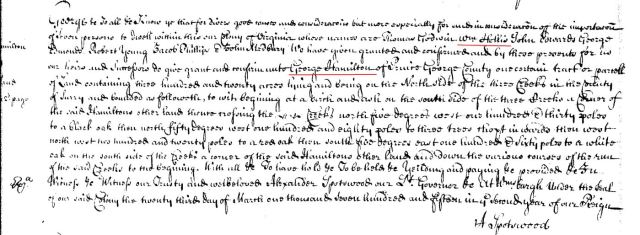 George &c To all &c Know ye that for divers good causes and considerations but more especially for and in consideration of the importation
of seven persons to dwell within this our Colony of Virginia whose names are Thomas Godwin Wm Hollis John Edwards George
Edmond Robert Young Jacob Phillip & John We have given granted and confirmed and by these presents for us
our heirs and successors do give grant and confirm unto George Hamilton of Prince George County one certain tract or parcell
of Land containing three hundred and twenty acres lying and being on the North side of the three Creeks in the County
of Surry and bounded as followeth, to wit begining at a on the south side of the three Creeks a corner of
the said Hamiltons other land thence crossing the Creeks north five degrees west one hundred & thirty poles
to a black oak then north fifty degrees west one hundred and eighty poles to three trees inwards then west
north west two hundred and twenty poles to a red oak then south five degrees east one hundred & sixty poles to a white
oak on the south side of the Creeks a corner of the said Hamiltons other land and down the various courses of the run
of the said Creeks to the begining. With all &c To have hold &c To be held &c Yeilding and paying &c provided &c In
Witness &c Witness our Trusty and welbeloved Alexander Spotswood our Lt Governor &c At Wmsburgh Under the Seal
of our said Colony the twenty third day of March one thousand seven hundred and fifteen in ye Second year of our Reign
A Spotswood